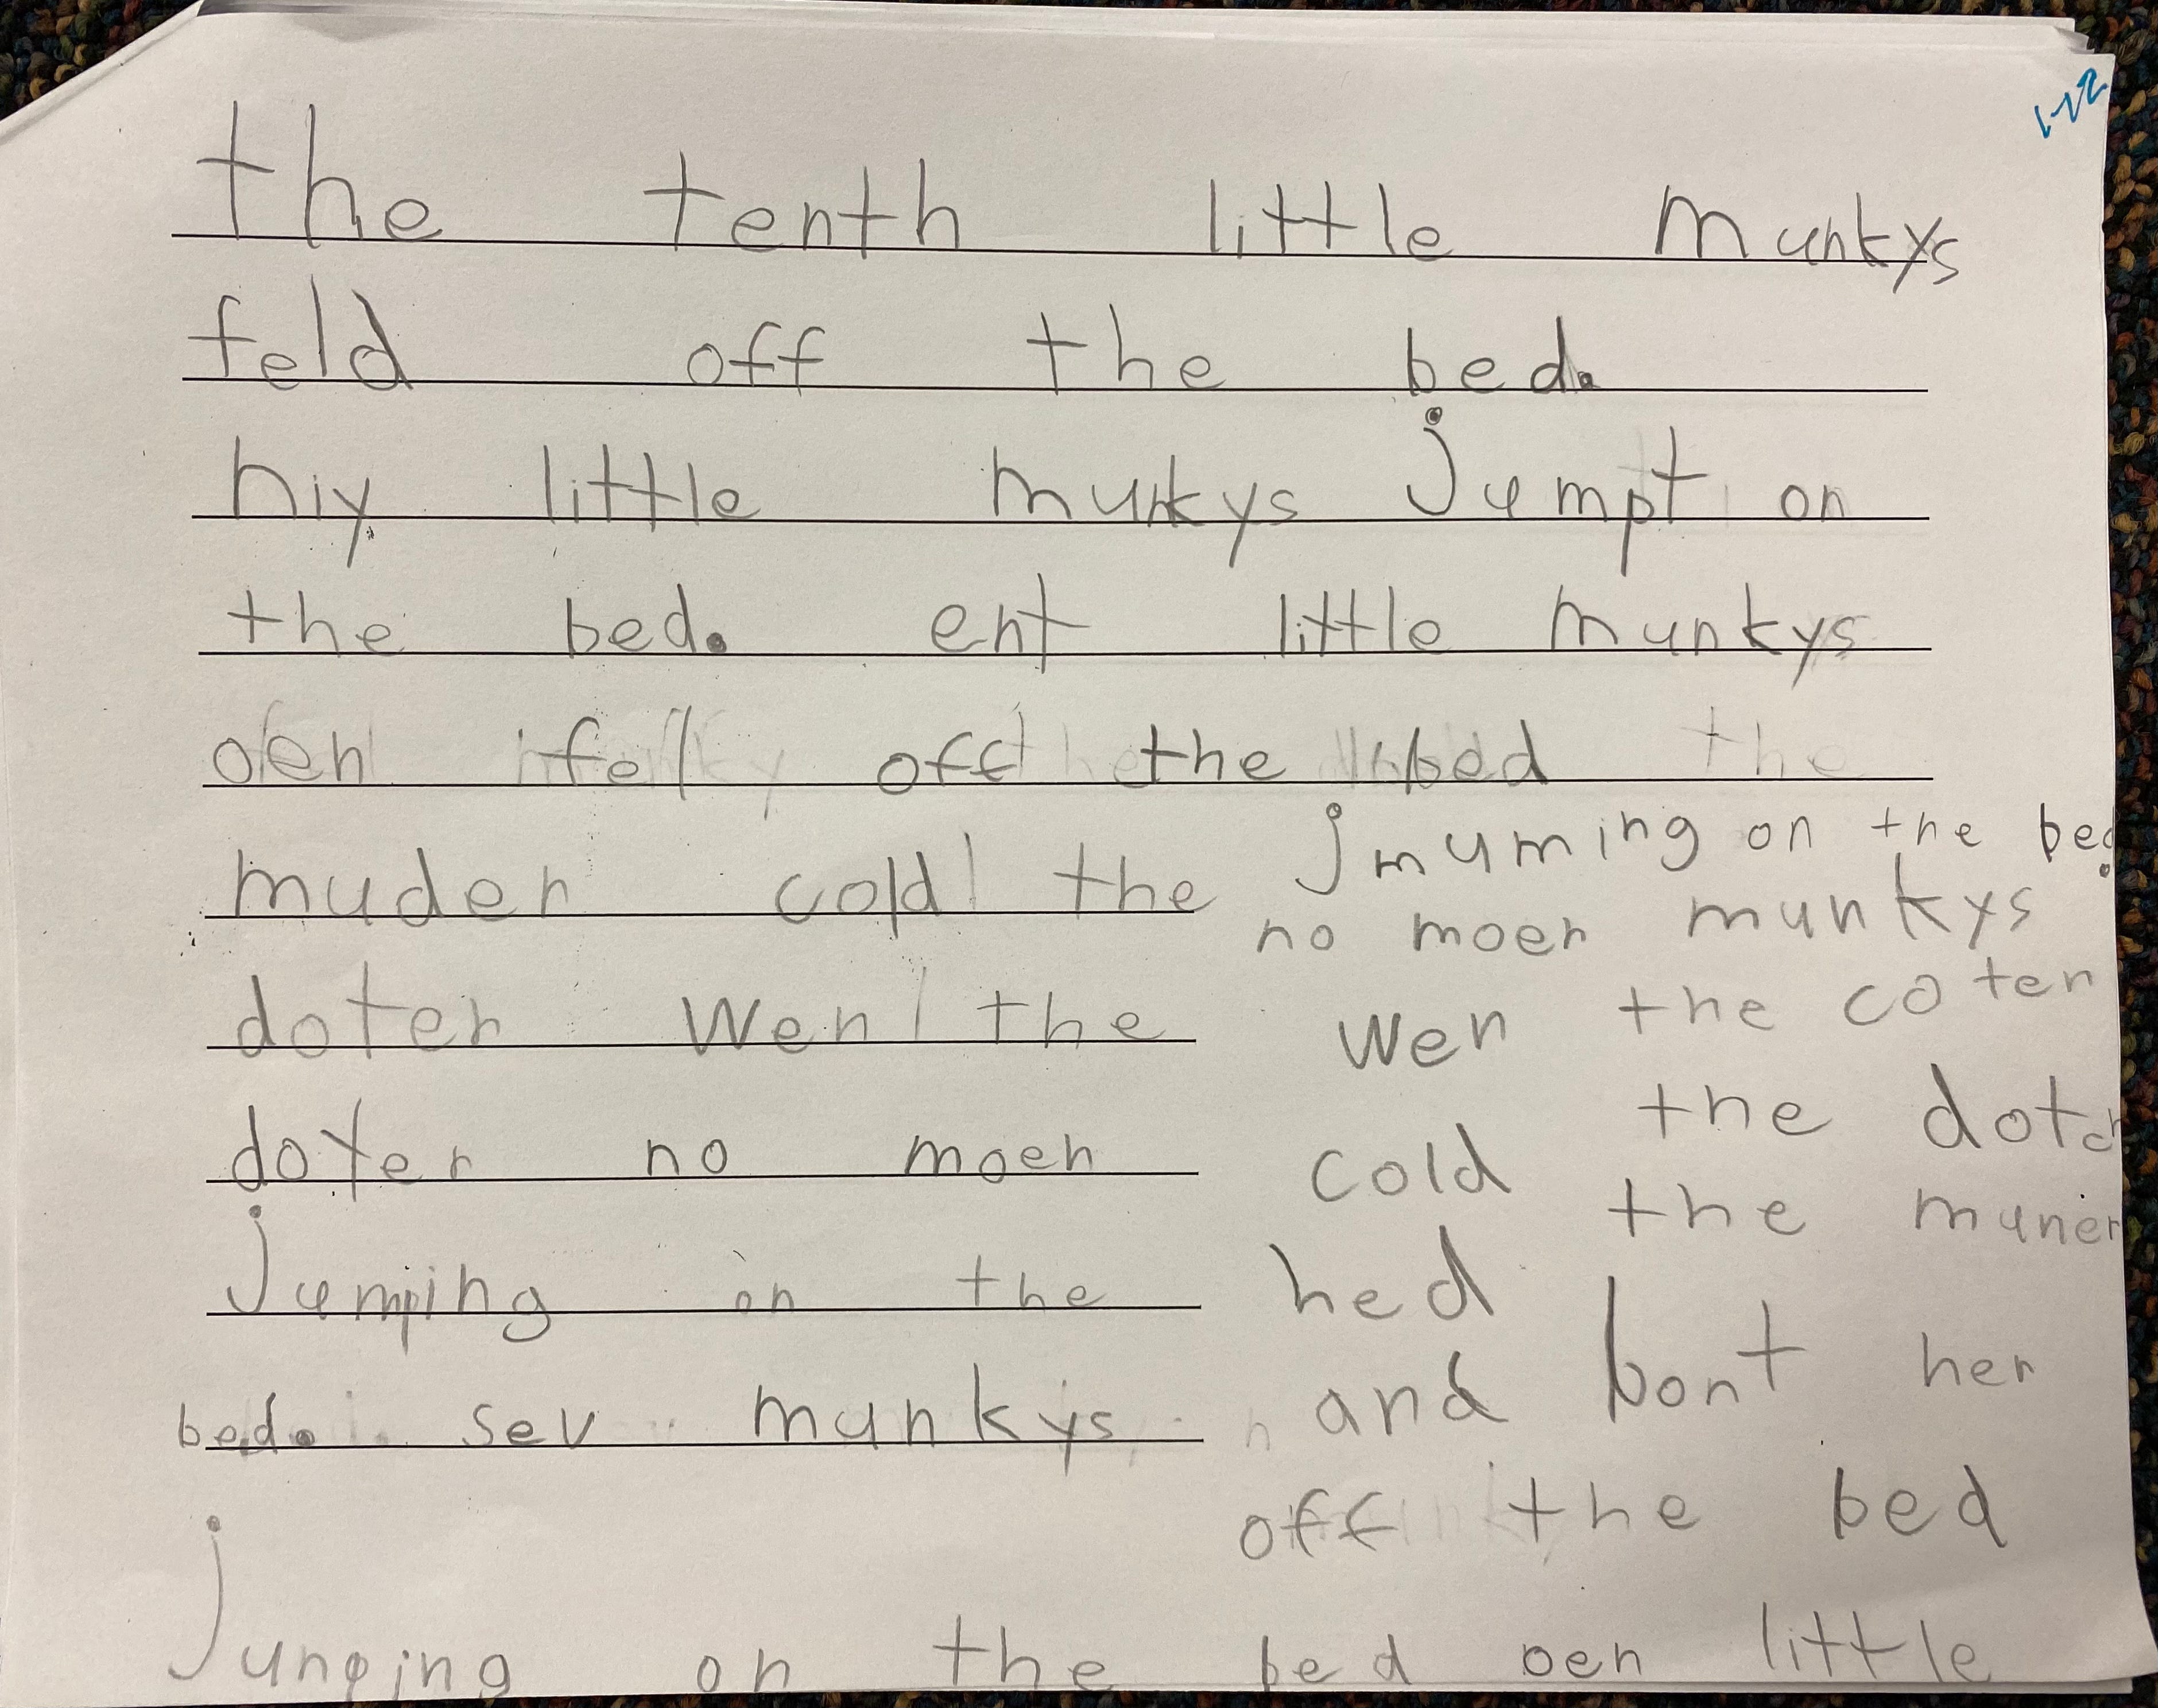 1-22
the tenth little munkys
feld off the bed.
niy little munkys jumpt on
the bed. ent little munkys
oen fell off the bed the
muder cold the
doter wen the
doter no moer
jumping on the
bed. sev munkys
jmuming on the bed.
no moer munkys
wen the coter
cold the doter
hed the muner
and bont her
off the bed
junping on the bed oen little